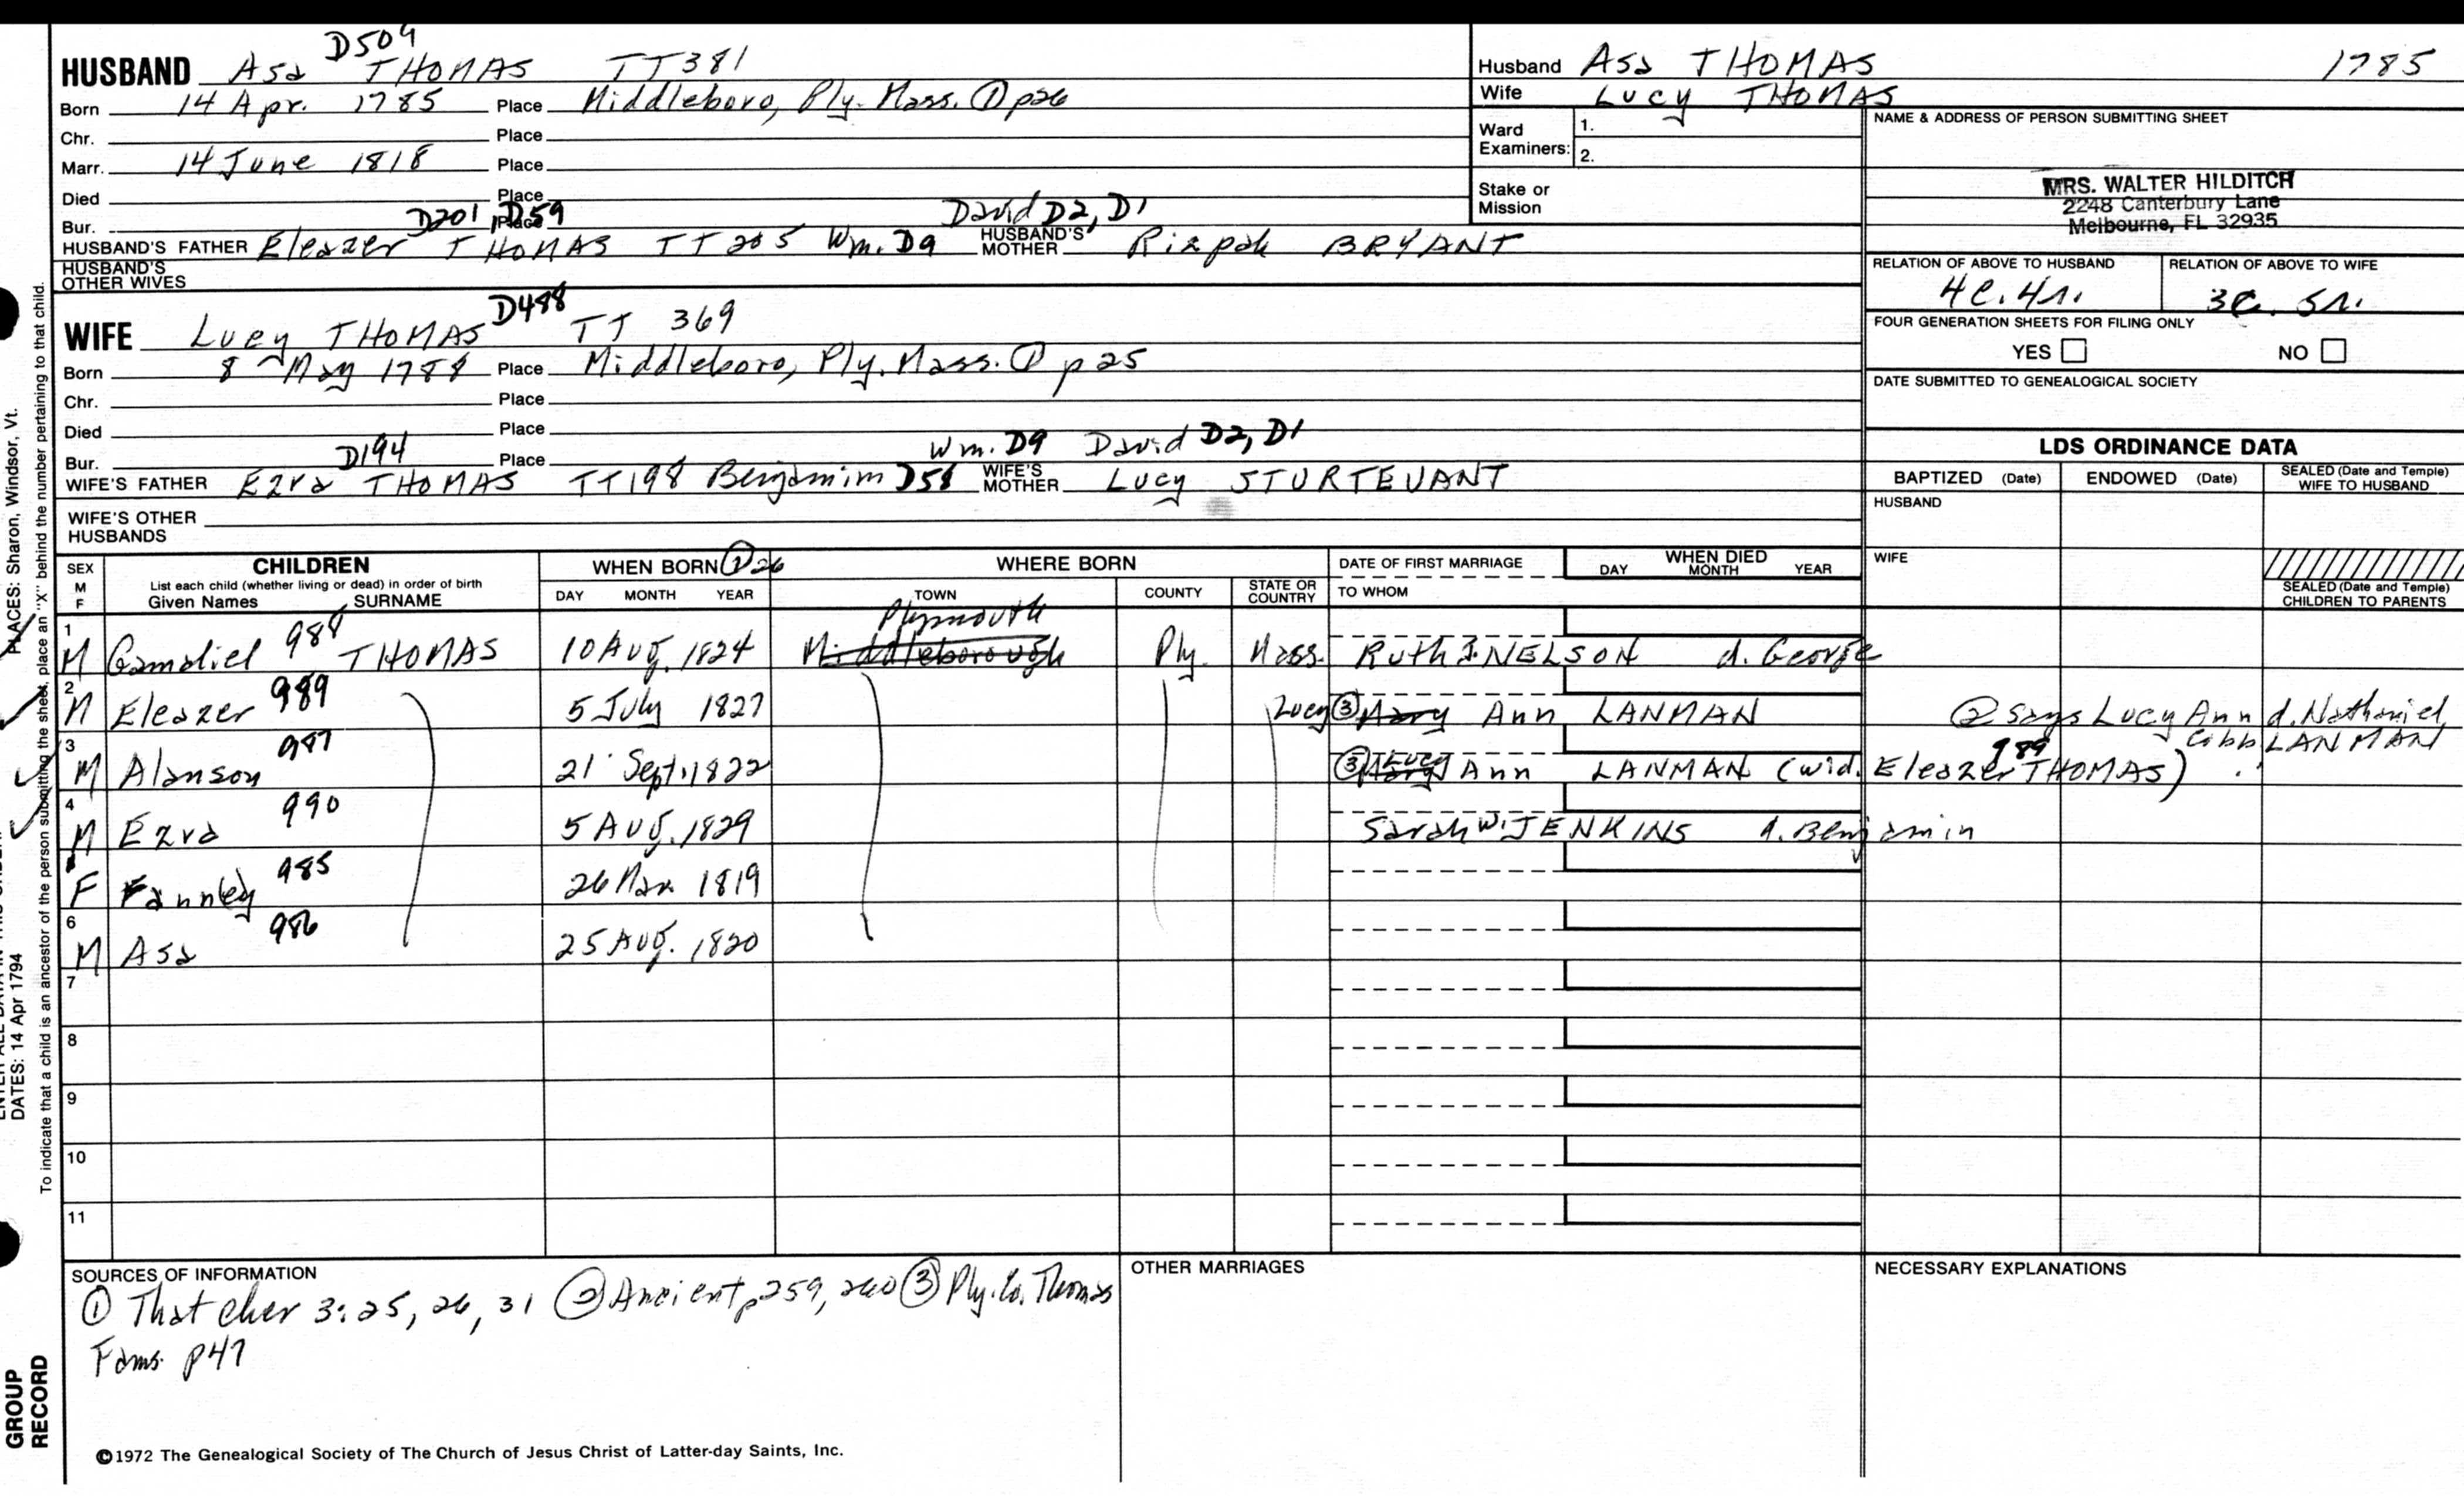 D509
HUSBAND Asa THOMAS TT381
Born 14 Apr. 1785 Place Middleboro, Ply. Mass. ① p26
Chr. Place
Marr. 14 June 1818 Place
Died Place
D201, D59 David D2, D1
Bur. Place
HUSBAND'S FATHER Eleazer THOMAS TT205 Wm. D9 HUSBAND'S MOTHER Rizpah BRYANT
HUSBAND'S OTHER WIVES
D498
WIFE Lucy THOMAS TT 369
Born 8 May 1788 Place Middleboro, Ply. Mass. ① p25
Chr. Place
Died Place
D194 Wm. D9 David D2, D1
Bur. Place
WIFE'S FATHER Ezra THOMAS TT198 Benjamim D58 WIFE'S MOTHER Lucy STURTEVANT
WIFE'S OTHER HUSBANDS
Husband Asa THOMAS 1785
Wife Lucy THOMAS
Ward Examiners: 1.
2.
Stake or Mission
NAME & ADDRESS OF PERSON SUBMITTING SHEET
MRS. WALTER HILDITCH
2248 Canterbury Lane
Melbourne, FL 32935
RELATION OF ABOVE TO HUSBAND RELATION OF ABOVE TO WIFE
4c. 4r. 3c. 5r.
FOUR GENERATION SHEETS FOR FILING ONLY
YES NO
DATE SUBMITTED TO GENEALOGICAL SOCIETY
LDS ORDINANCE DATA
BAPTIZED (Date) ENDOWED (Date) SEALED (Date and Temple) WIFE TO HUSBAND
HUSBAND
WIFE
SEALED (Date and Temple) CHILDREN TO PARENTS
SEX M F CHILDREN WHEN BORN ① 26 WHERE BORN DATE OF FIRST MARRIAGE WHEN DIED
List each child (whether living or dead) in order of birth
Given Names SURNAME DAY MONTH YEAR TOWN COUNTY STATE OR COUNTRY TO WHOM DAY MONTH YEAR
Plymouth
1 M Gamaliel 988 THOMAS 10 Aug. 1824 Middleborough Ply. Mass. Ruth J. NELSON d. George
2 M Eleazer 989 5 July 1827 Lucy ③ Mary Ann LANMAN ② says Lucy Ann d. Nathaniel
Cobb LANMAN
3 M Alanson 987 21 Sept. 1822 ③ Mary Lucy Ann LANMAN (wid. Eleazer 989 THOMAS)
4 M Ezra 990 5 Aug. 1829 Sarah W. JENKINS d. Benjamin
F Fannley 985 26 Mar 1819
6 M Asa 986 25 Aug. 1820
7
8
9
10
11
SOURCES OF INFORMATION
① Thatcher 3: 25, 26, 31 ② Ancient p259, 260 ③ Ply. Co. Thomas
Fams. p47
OTHER MARRIAGES
NECESSARY EXPLANATIONS
©1972 The Genealogical Society of The Church of Jesus Christ of Latter-day Saints, Inc.
PLACES: Sharon, Windsor, Vt.
DATES: 14 Apr 1794
To indicate that a child is an ancestor of the person submitting the sheet, place an "X" behind the number pertaining to that child.
GROUP
RECORD